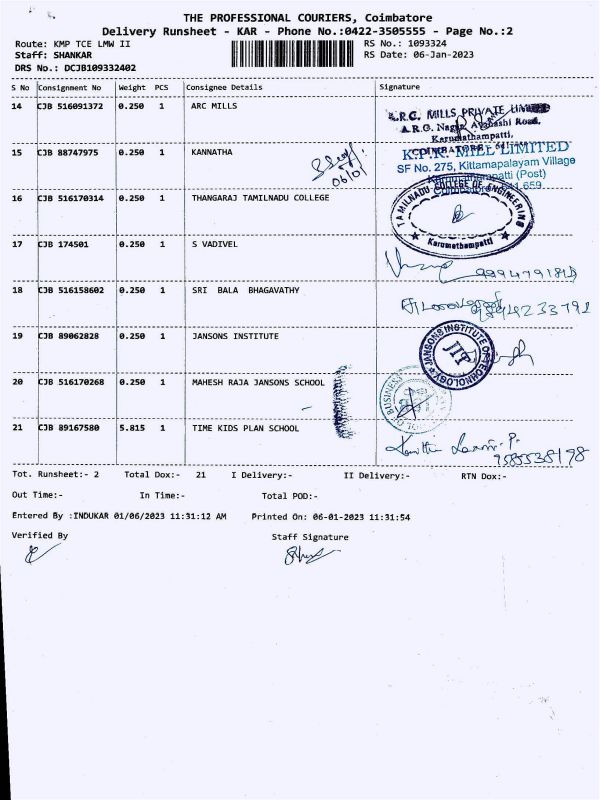 THE PROFESSIONAL COURIERS, Coimbatore
Delivery Runsheet - KAR - Phone No.:0422-3505555 - Page No.:2
Route: KMP TCE LMW II RS No.: 1093324
Staff: SHANKAR RS Date: 06-Jan-2023
DRS No.: DCJB109332402
S No Consignment No Weight PCS Consignee Details Signature
14 CJB 516091372 0.250 1 ARC MILLS
A.R.C. MILLS PRIVATE LIMITED
A.R.G. Nagar, Road,
Karumathampatti,
COIMBATORE
15 CJB 88747975 0.250 1 KANNATHA
06/01
K.P.R. MILL LIMITED
SF No. 275, Kittamapalayam Village
Karumathampatti (Post)
Coimbatore 641 659
16 CJB 516170314 0.250 1 THANGARAJ TAMILNADU COLLEGE
TAMILNADU COLLEGE OF ENGINEERING
Karumathampatti
17 CJB 174501 0.250 1 S VADIVEL
18 CJB 516158602 0.250 1 SRI BALA BHAGAVATHY
19 CJB 89062828 0.250 1 JANSONS INSTITUTE
JANSONS INSTITUTE OF TECHNOLOGY
20 CJB 516170268 0.250 1 MAHESH RAJA JANSONS SCHOOL
OF BUSINESS
21 CJB 89167580 5.815 1 TIME KIDS PLAN SCHOOL
9585538198
Tot. Runsheet:- 2 Total Dox:- 21 I Delivery:- II Delivery:- RTN Dox:-
Out Time:- In Time:- Total POD:-
Entered By :INDUKAR 01/06/2023 11:31:12 AM Printed On: 06-01-2023 11:31:54
Verified By Staff Signature